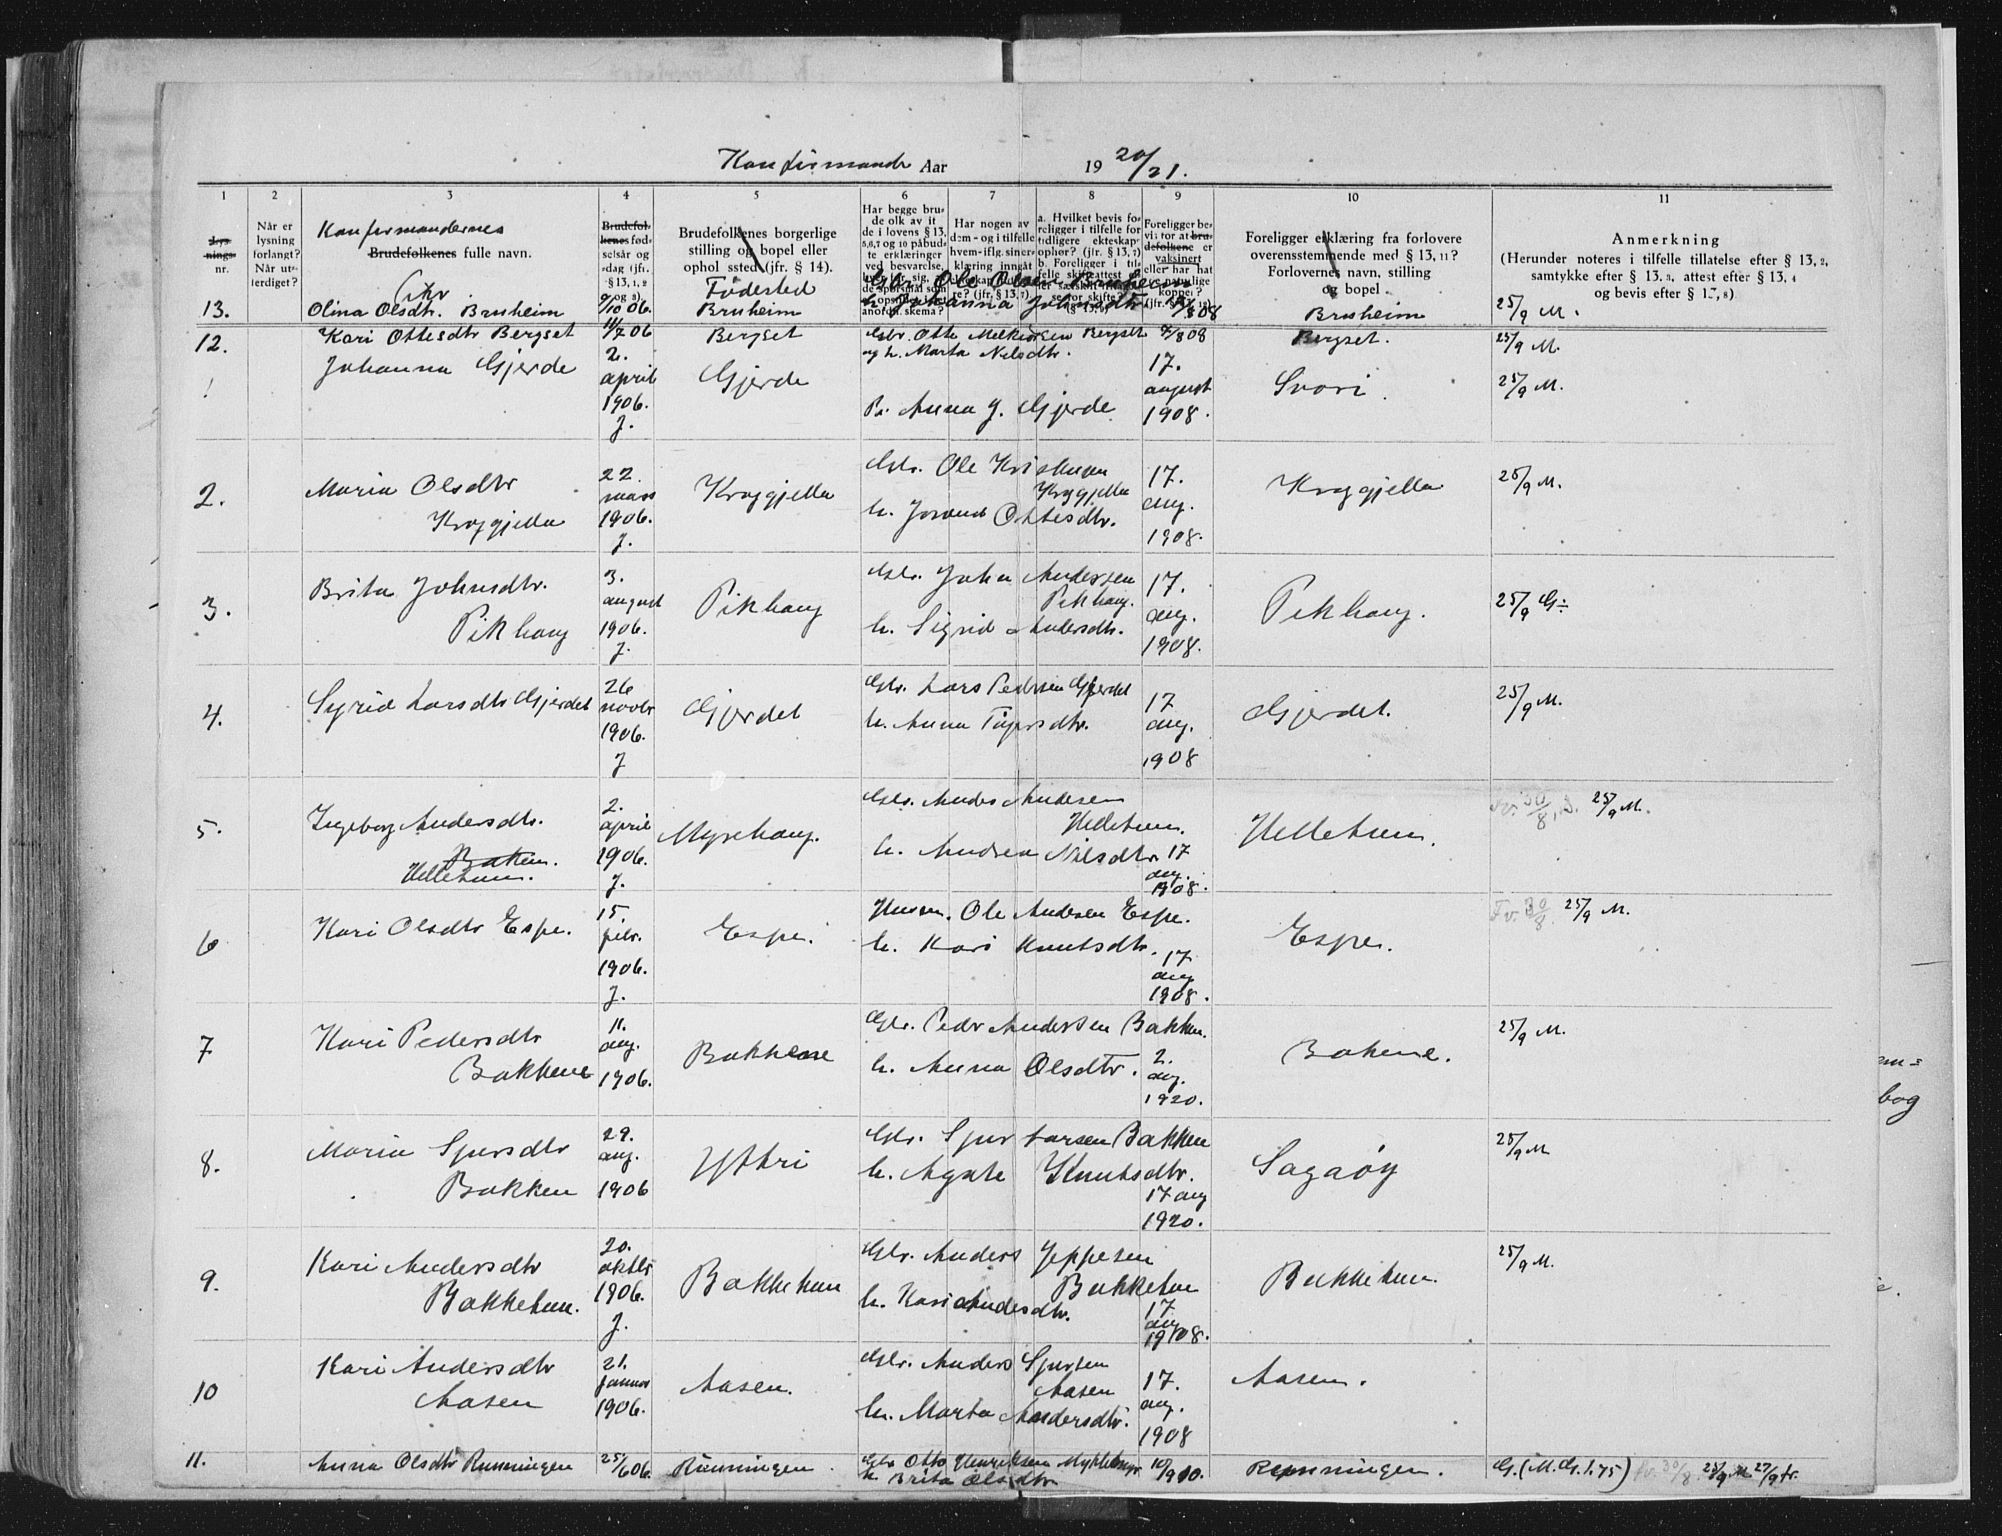 Konfirmander Aar 1920/21.
1 2 3 4 5 6 7 8 9 10 11
Lys-
nings-
nr.
Når er
lysning
forlangt?
Når ut-
ferdiget?
Konfirmandernes
Brudefolkenes fulle navn.
Brudefol-
kenes fød-
selsår og
-dag (jfr.
§ 13, 1, 2
og 3).
Brudefolkenes borgerlige
stilling og bopel eller
opholdssted (jfr. § 14).
Fødested
Har begge bru-
defolk av it
de i lovens § 13,
5,6,7 og 10 påbud-
te erklæringer
ved besvarelse
Har nogen av
dem - og i tilfelle
hvem - iflg. sin er-
klæring inngåt
a. Hvilket bevis fo-
religger i tilfelle for
tidligere ekteskaps
ophør? (jfr. § 13, 7)
b. Foreligger i til-
felle skifteattest
Foreligger be-
vis for at brude-
folkene er
vaksinert
eller har hat
naturlige
kopper?
Foreligger erklæring fra forlovere
overensstemmende med § 13, 11?
Forlovernes navn, stilling
og bopel
Anmerkning
(Herunder noteres i tilfelle tillatelse efter § 13, 2,
samtykke efter § 13, 3, attest efter § 13, 4
og bevis efter § 17, 8)
13. Olina Olsdtr. Bruheim 9/10 06. Bruheim Gbr. Ole Olsen Bruheim
h. Johanna Johnsdtr. 17/8 08 Bruheim 25/9 M.
12. Kari Ottesdtr Bergset 11/7 06 Bergset Gbr. Otte Melkiorsen Bergset
og h. Marta Nilsdtr. 9/8 08 Bergset. 25/9 M.
Johanna Gjerde
2.
april
1906.
J.
Gjerde
Pi. Anna J. Gjerde
17.
august
1908.
Svori. 25/9 M.
2. Maria Olsdtr
Kroggjella
22.
mars
1906.
J.
Kroggjella
Gbr. Ole Kristensen
Kroggjella
h. Jorand Ottesdtr.
17.
aug.
1908.
Kroggjella 25/9 M.
3. Brita Johnsdtr.
Pikhaug
3.
august
1906.
J.
Pikhaug
Gbr. John Andersen
Pikhaug.
h. Sigrid Andersdtr.
17.
aug.
1908.
Pikhaug. 25/9 G÷
4. Syrid Larsdtr Gjerdet
26
novbr
1906.
J
Gjerdet
Gbr. Lars Pedersen Gjerdet
h. Anna Tøgersdtr.
17
aug.
1908
Gjerdet. 25/9 M.
5. Ingeborg Andersdtr.
Bakken.
Helletun.
2.
april
1906.
J.
Myrehaug.
Gbr. Anders Andersen
Helletun.
h. Andrea Nilsdtr.
17
aug.
1908.
Helletun. Fv. 30/8 25/9 M.
6 Kari Olsdtr Espe.
15.
febr.
1906.
J.
Espe.
Husm. Ole Andersen Espe.
h. Kari Knutsdtr.
17
aug
1908.
Espe. Fv. 30/8. 25/9 M.
7 Kari Pedersdtr
Bakkene
11.
aug.
1906.
Bakkene
Gbr. Peder Andersen Bakken.
h. Anna Olsdtr.
2.
aug.
1920.
Bakene. 25/9 M.
8. Maria Sjursdtr
Bakken
29.
aug.
1906
Yttri
Gbr. Sjur Larsen Bakken
h. Agate Knutsdtr.
17 aug
1920.
Sagaöy 25/9 M
9. Kari Andersdtr
Bakketun.
20.
oktbr
1906.
J.
Bakketun
Gbr. Anders Jeppesen
Bakketun
h. Kari Andersdtr.
17
aug
1908.
Bakketun. 25/9 M.
10 Kari Andersdtr
Aasen
21.
januar
1906.
Aasen.
Gbr. Anders Sjursen
Aasen
h. Marta Andersdtr.
17.
aug.
1908
Aasen.
11. Anna Olsdtr Runningen 25/6 06. Runningen Gbr Otto Henriksen Myklebust
h. Brita Olsdtr 10/9 10. Runningen. G. (M. G. 1.75) Fv. 30/8. 25/9 M 27/9 fr.
em=
bog